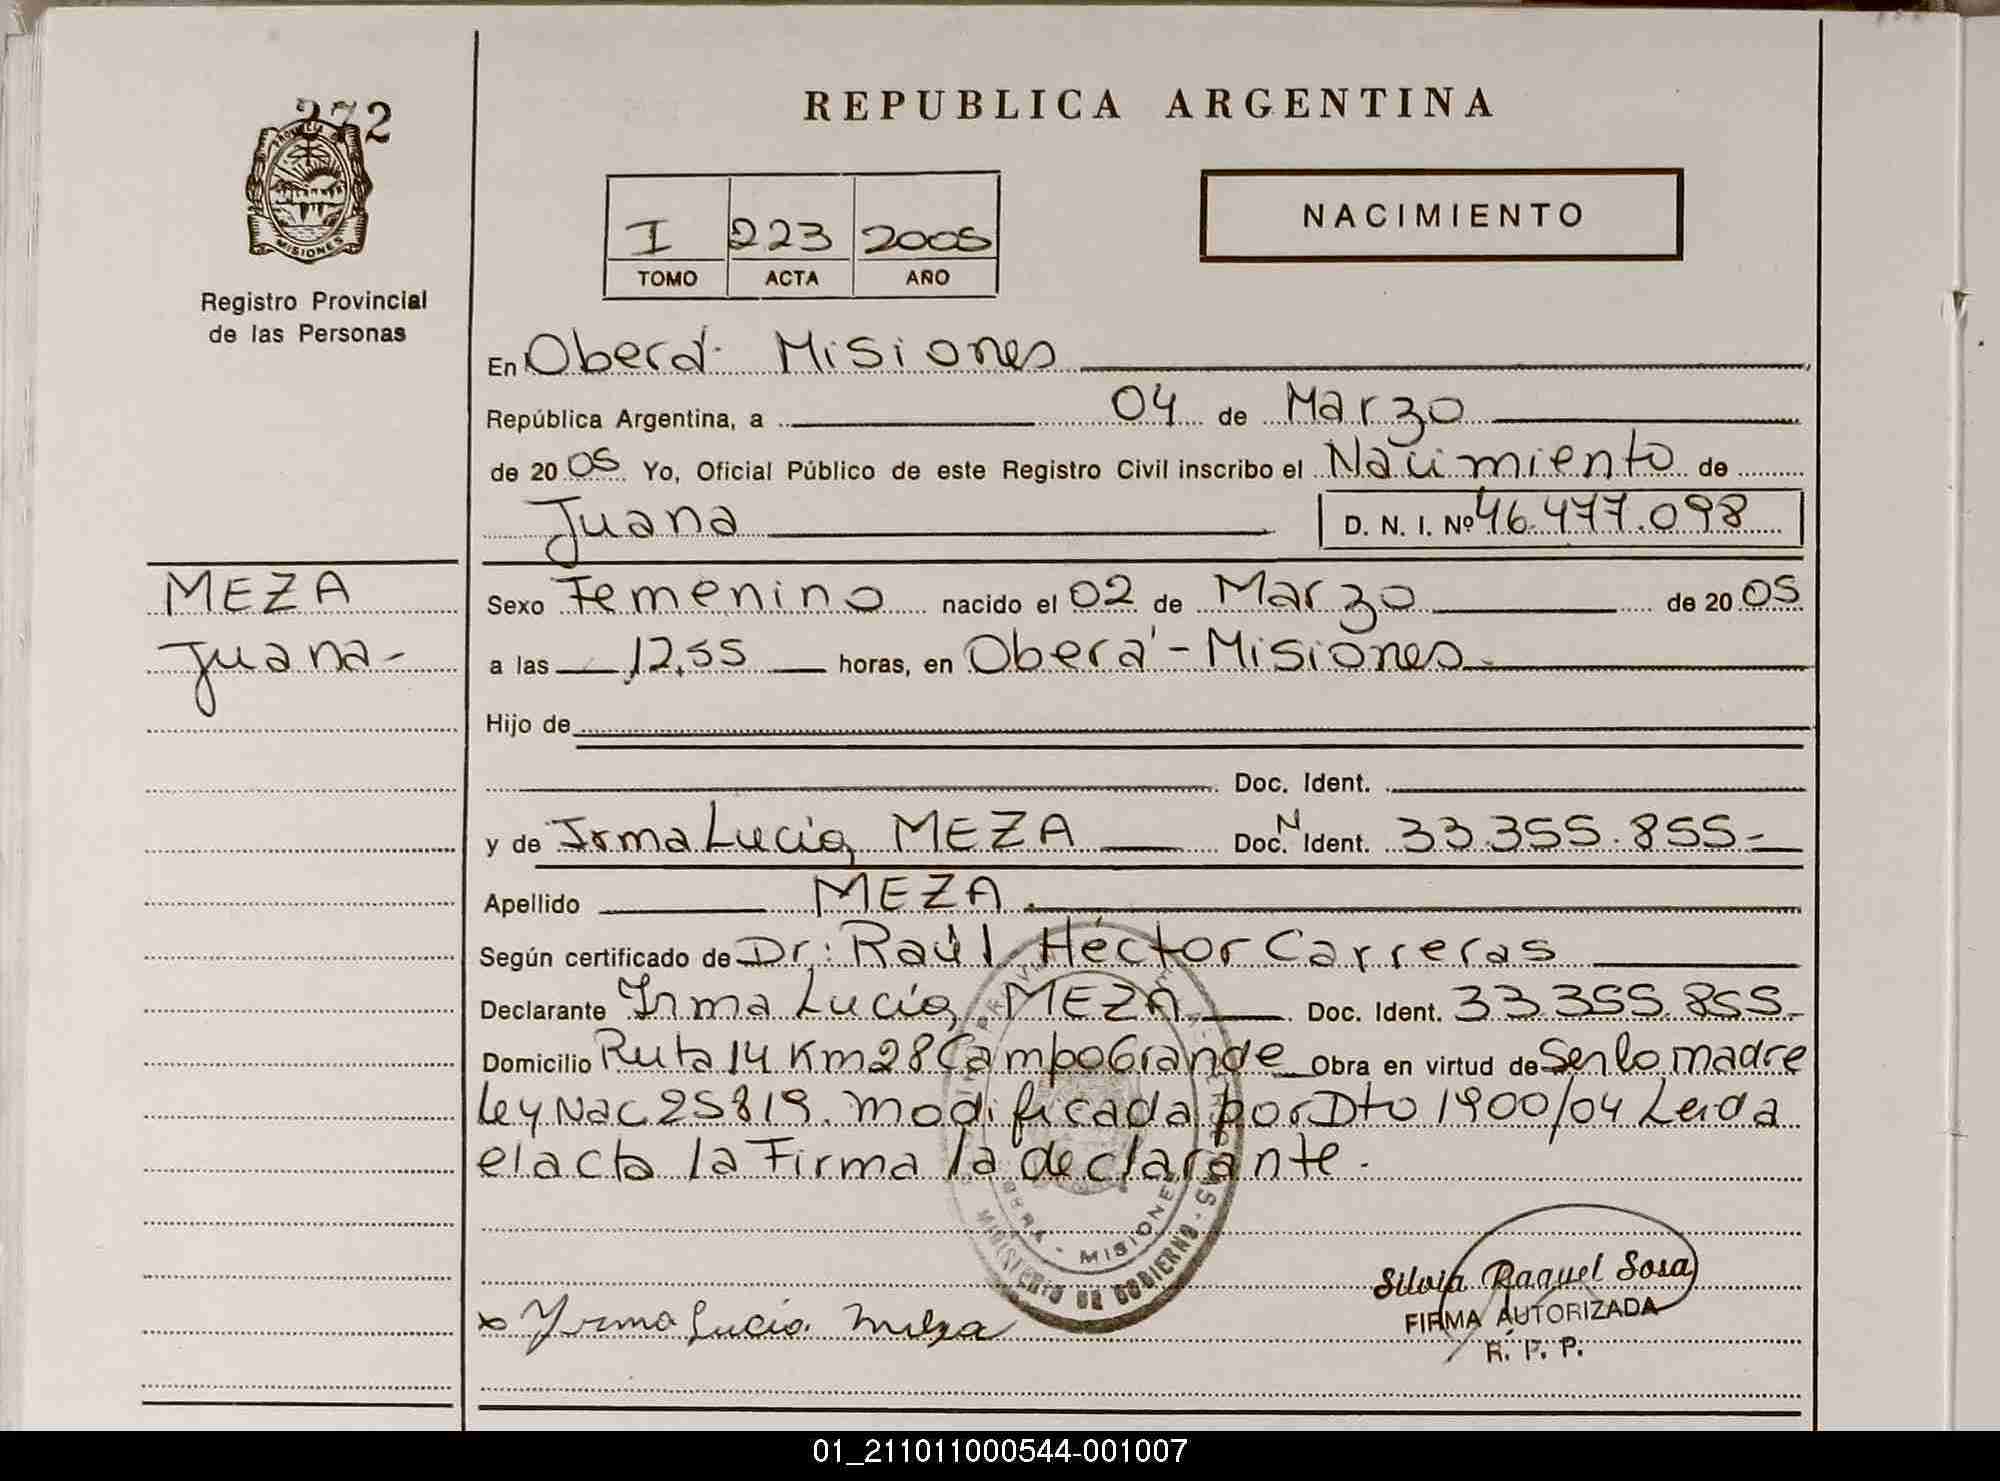 272
PROVINCIA DE
MISIONES
Registro Provincial
de las Personas
REPUBLICA ARGENTINA
I 223 2005
TOMO ACTA AÑO
NACIMIENTO
En Oberá - Misiones
República Argentina, a 04 de Marzo
de 2005 Yo, Oficial Público de este Registro Civil inscribo el Nacimiento de
Juana D. N. I. Nº 46.477.098
MEZA
Juana-
Sexo Femenino nacido el 02 de Marzo de 2005
a las 12,55 horas, en Oberá - Misiones
Hijo de
Doc. Ident.
y de Irma Lucía MEZA Doc. N Ident. 33.355.855-
Apellido MEZA
Según certificado de Dr: Raúl Héctor Carreras
Declarante Irma Lucía MEZA Doc. Ident. 33.355.855-
Domicilio Ruta 14 Km 28 Campo Grande Obra en virtud de Ser la madre
Ley Nac 25819. modificada por Dto 1900/04 Leida
el acta la Firma la declarante.
MISIONES
MINISTERIO DE GOBIERNO
x Yrma Lucia meza
Silvia Raquel Sosa
FIRMA AUTORIZADA
R. P. P.
01_211011000544-001007